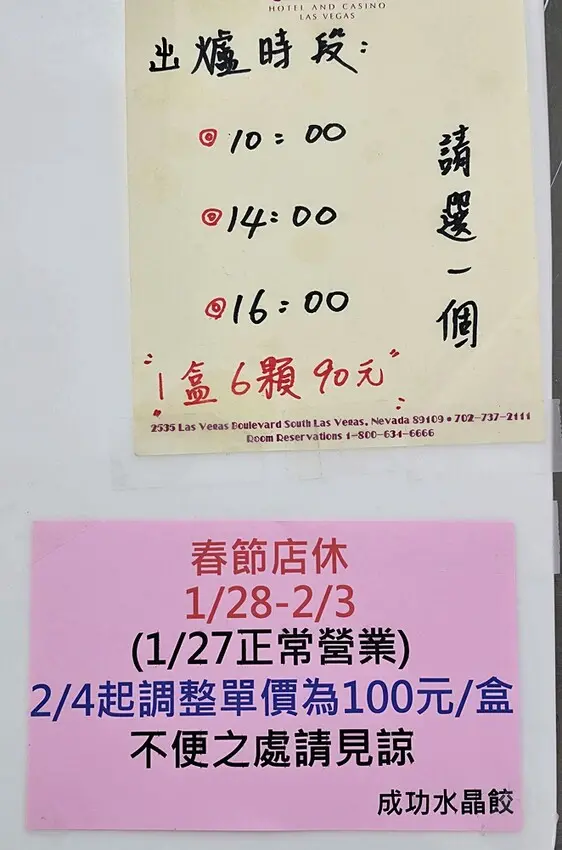 HOTEL AND CASINO
LAS VEGAS
出爐時段:
◎10:00
◎14:00
◎16:00
請選一個
"1盒6顆90元"
2535 Las Vegas Boulevard South Las Vegas, Nevada 89109 • 702-737-2111
Room Reservations 1-800-634-6666
春節店休
1/28-2/3
(1/27正常營業)
2/4起調整單價為100元/盒
不便之處請見諒
成功水晶餃